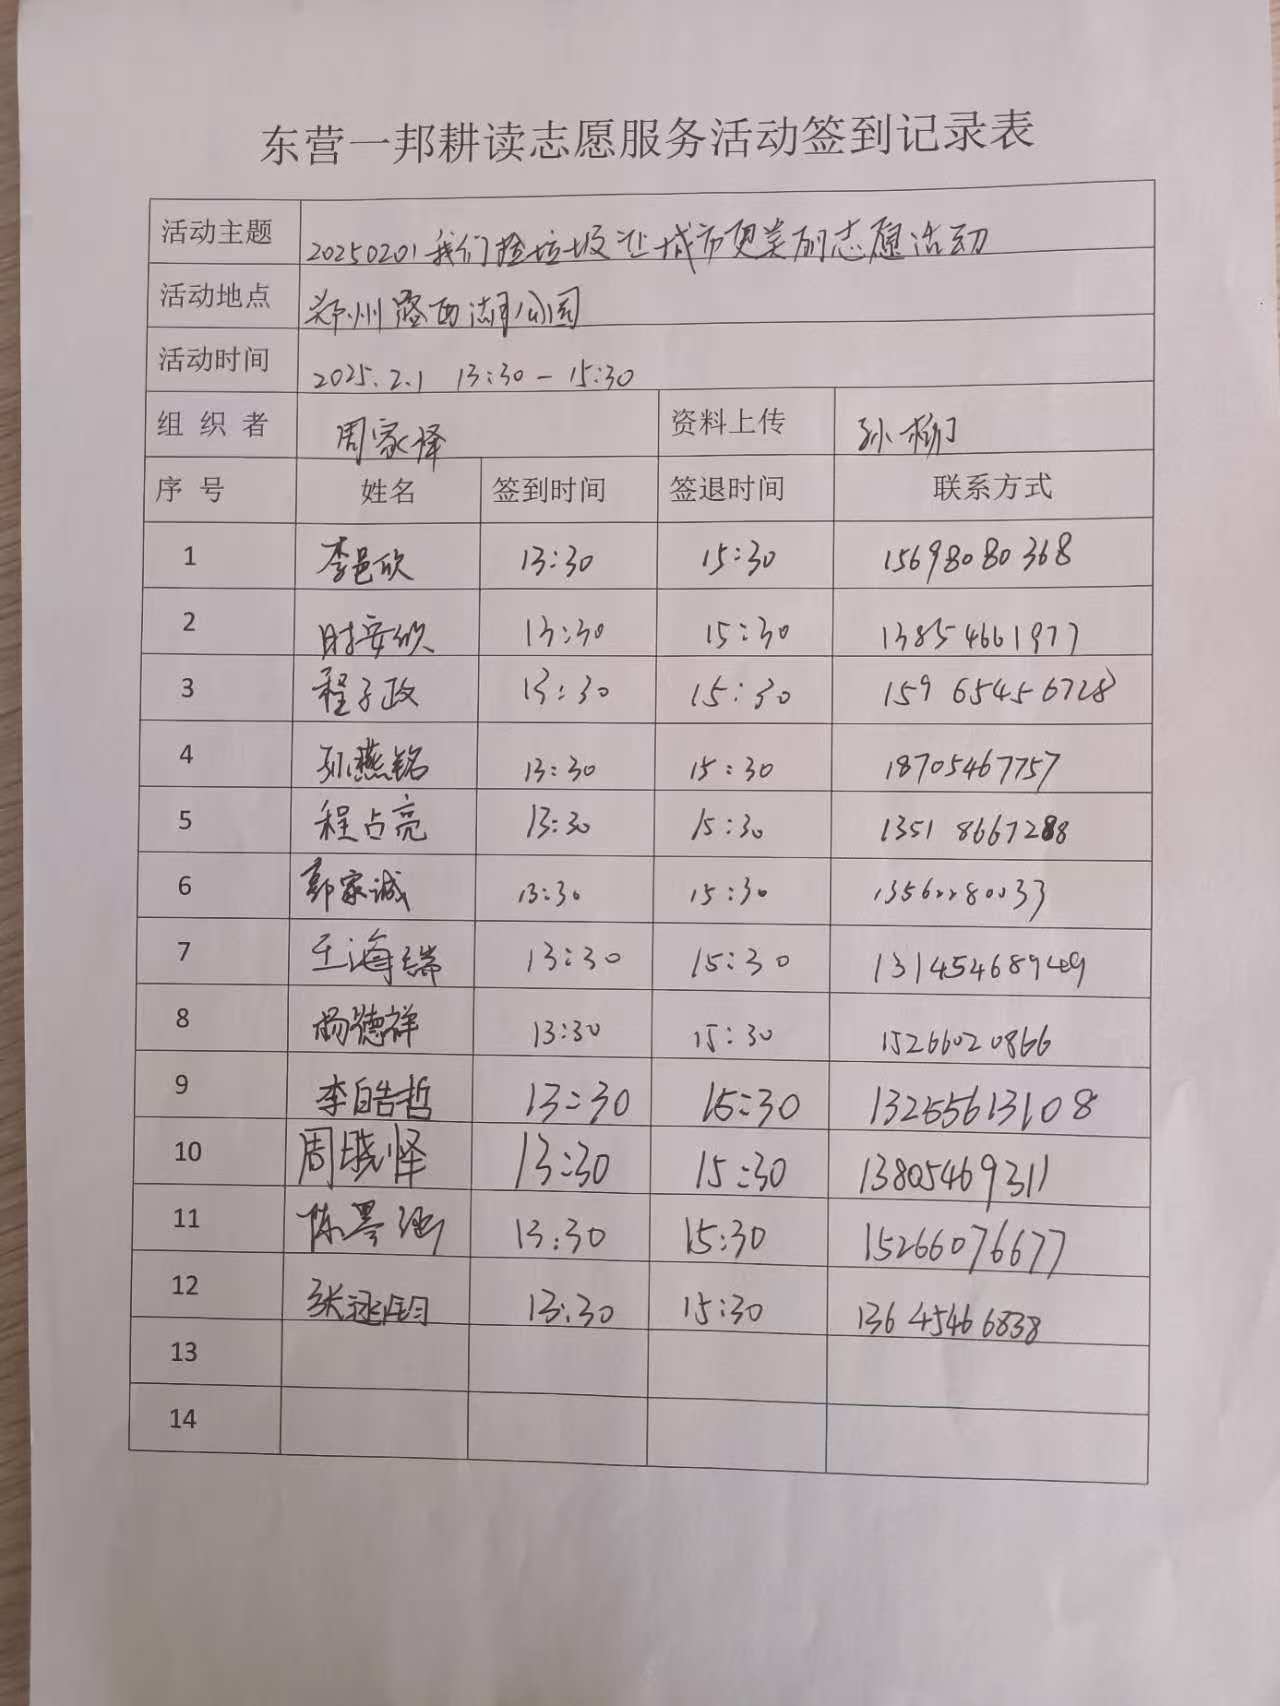 东营一邦耕读志愿服务活动签到记录表
活动主题 20250201我们捡垃圾让城市更美丽志愿活动
活动地点 郑州路西湖公园
活动时间 2025.2.1 13:30-15:30
组织者 周家译 资料上传 孙杨
序号 姓名 签到时间 签退时间 联系方式
1 李邑欣 13:30 15:30 15698080368
2 时安欣 13:30 15:30 13854661977
3 程子政 13:30 15:30 15965456728
4 孙燕铭 13:30 15:30 18705467757
5 程占亮 13:30 15:30 13518667288
6 郭家诚 13:30 15:30 13562280033
7 王海瑞 13:30 15:30 13145468949
8 杨德祥 13:30 15:30 15266020866
9 李皓哲 13:30 15:30 13255613108
10 周晓怿 13:30 15:30 13805469311
11 陈墨涵 13:30 15:30 15266076677
12 张 13:30 15:30 13645466838
13
14